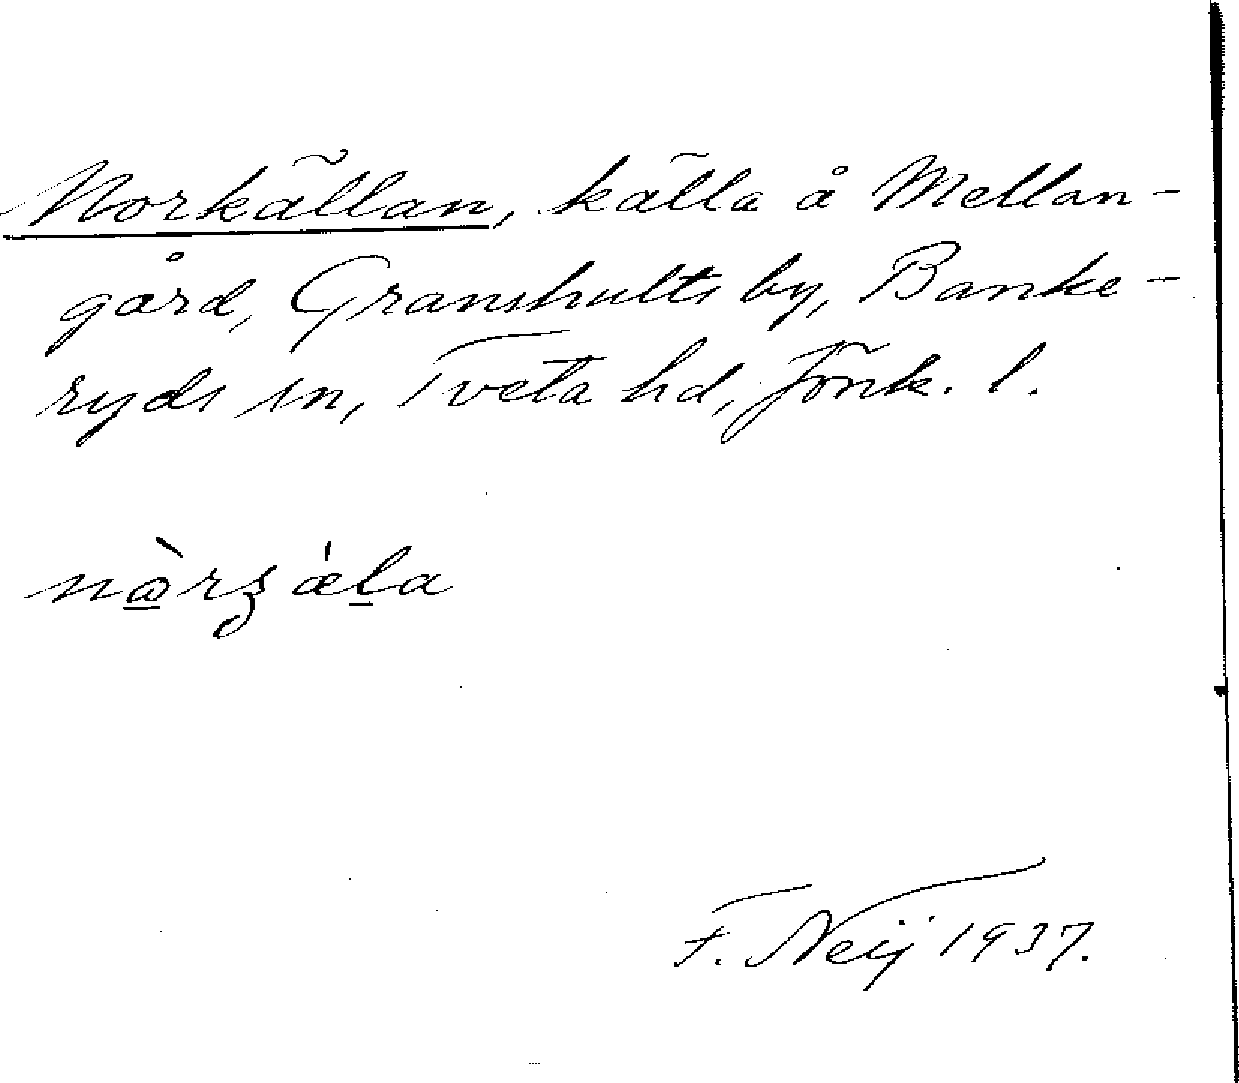 Norkällan, källa å Mellan-
gård, Granshults by, Banke-
ryds sn, Tveta hd, Jönk. l.
F. Neij 1937.